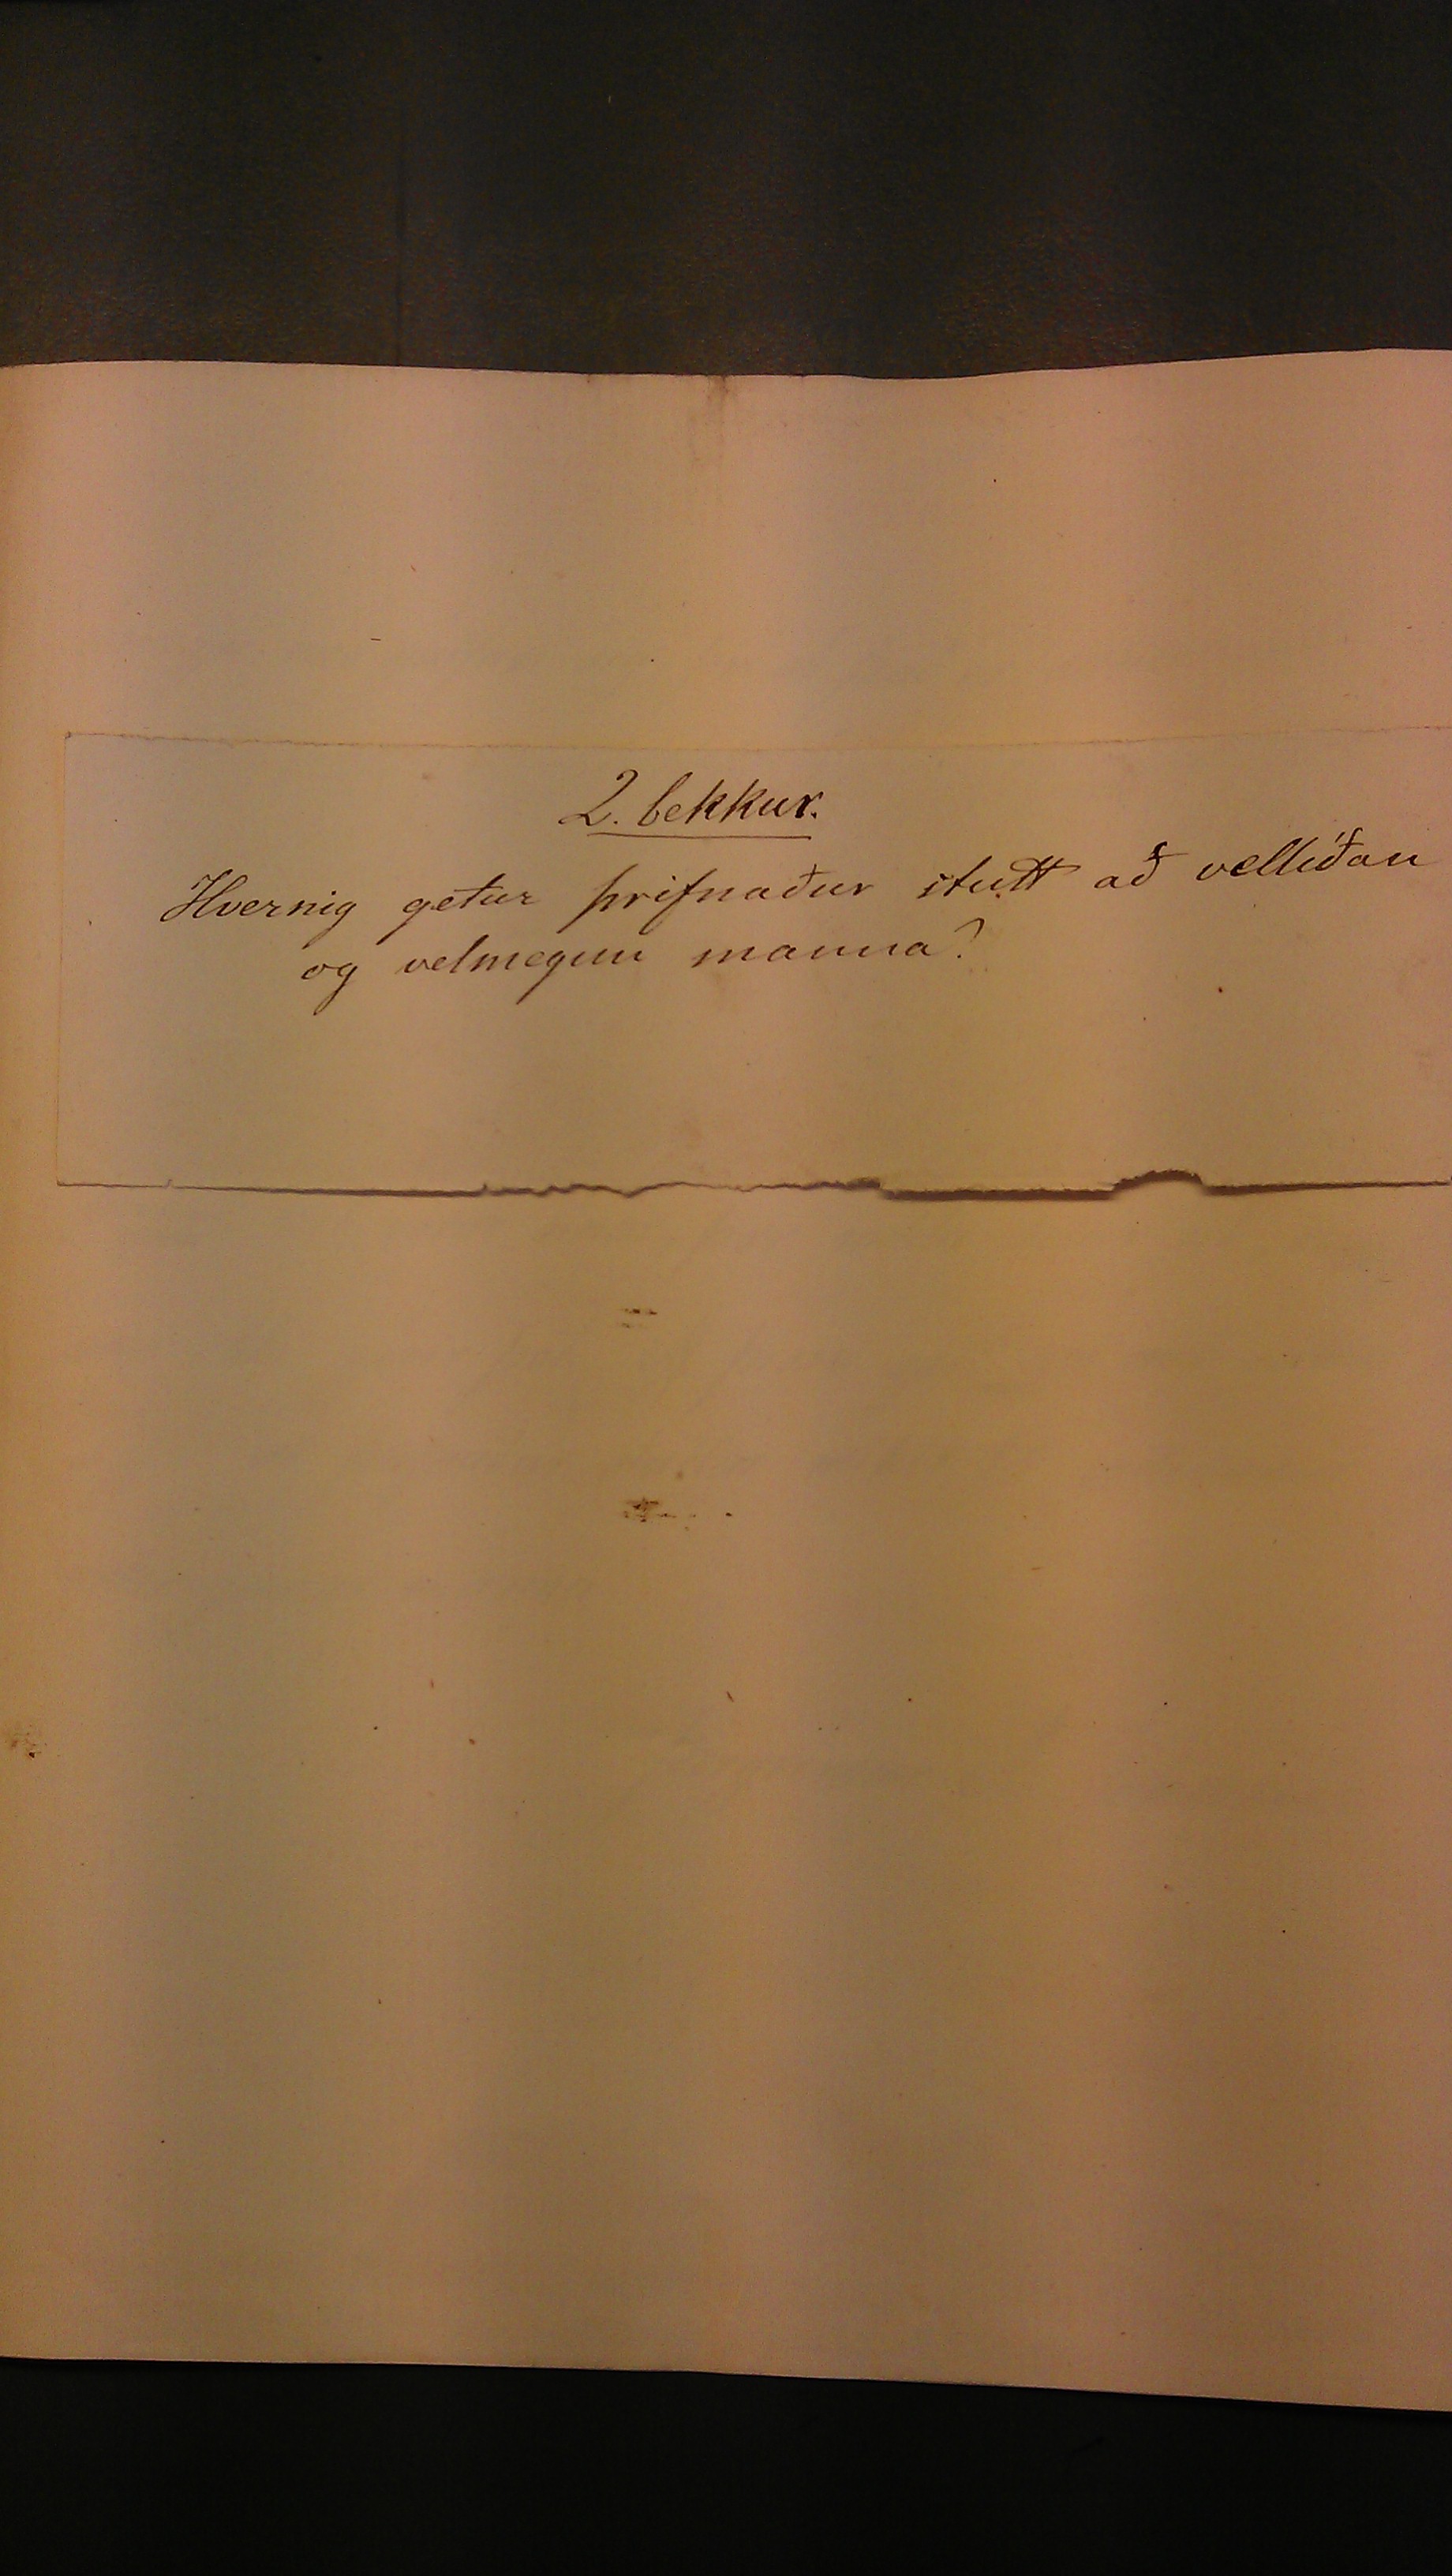 2. bekkur.
Hvernig getur þrifnaður stutt að vellíðan
og velmegun manna?